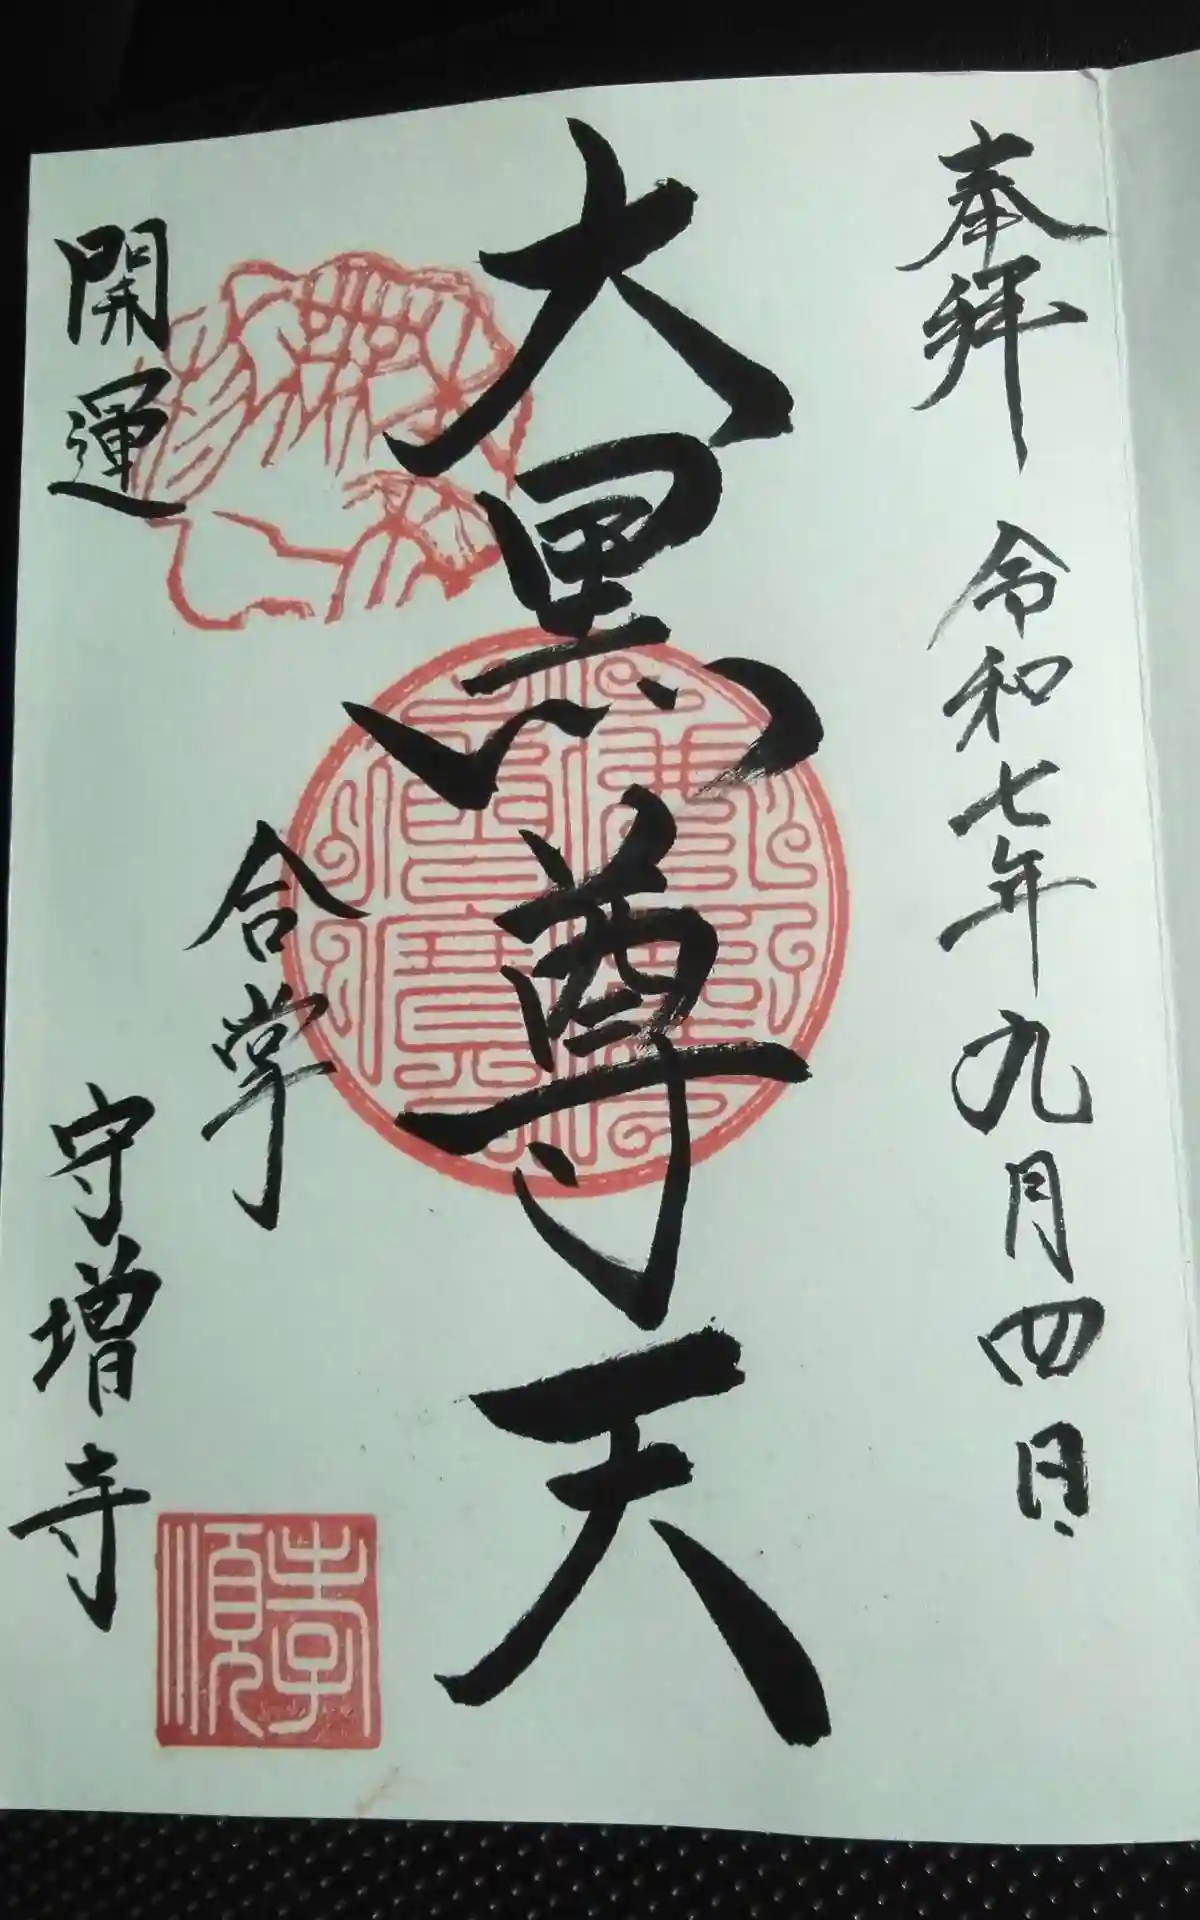 奉拝 令和七年九月四日
大黒尊天
開運
合掌
守増寺
孝順